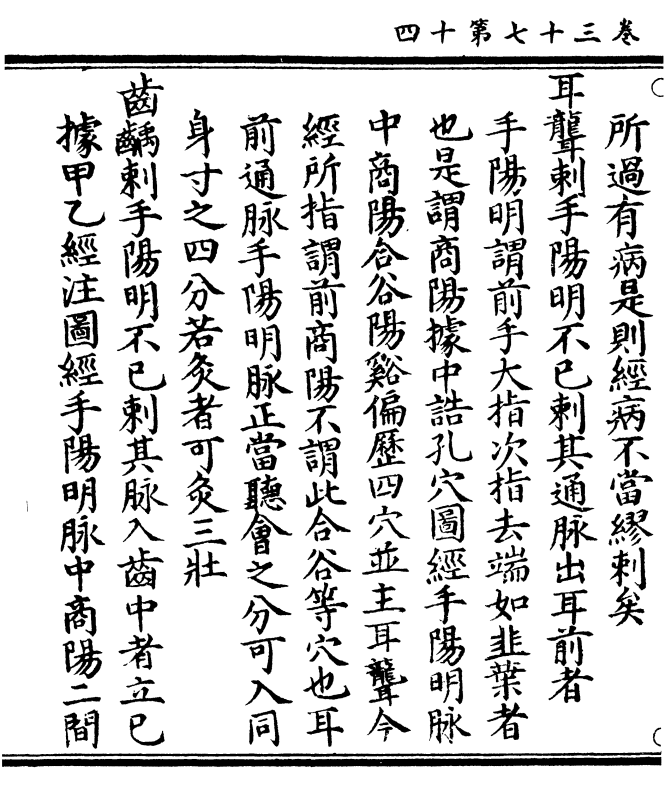 卷三十七第十四
所過有病是則經病不當繆刺矣
耳聾刺手陽明不已刺其通脉出耳前者
手陽明謂前手大指次指去端如韭葉者
也是謂商陽據中誥孔穴圖經手陽明脉
中商陽合谷陽谿偏歷四穴並主耳聾今
經所指謂前商陽不謂此合谷等穴也耳
前通脉手陽明脉正當聽會之分可入同
身寸之四分若灸者可灸三壯
齒齲刺手陽明不已刺其脉入齒中者立已
據甲乙經注圖經手陽明脉中商陽二間